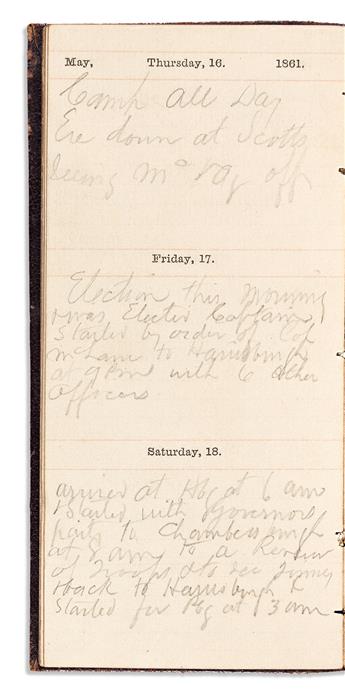 May, Thursday, 16. 1861.
Camp all Day
Eve down at Scotts
seeing off
Friday, 17.
Election this morning
& was Elected Captain
Started by order of Col
McLane to Harrisburgh
at 9 PM with 6 other
Officers
Saturday, 18.
arrived at Hbg at 6 am
& Started with Governors
party to Chambersburgh
at 8 am to a Review
of Troops & to see
& back to Harrisburgh &
Started for Pbg at 3 am